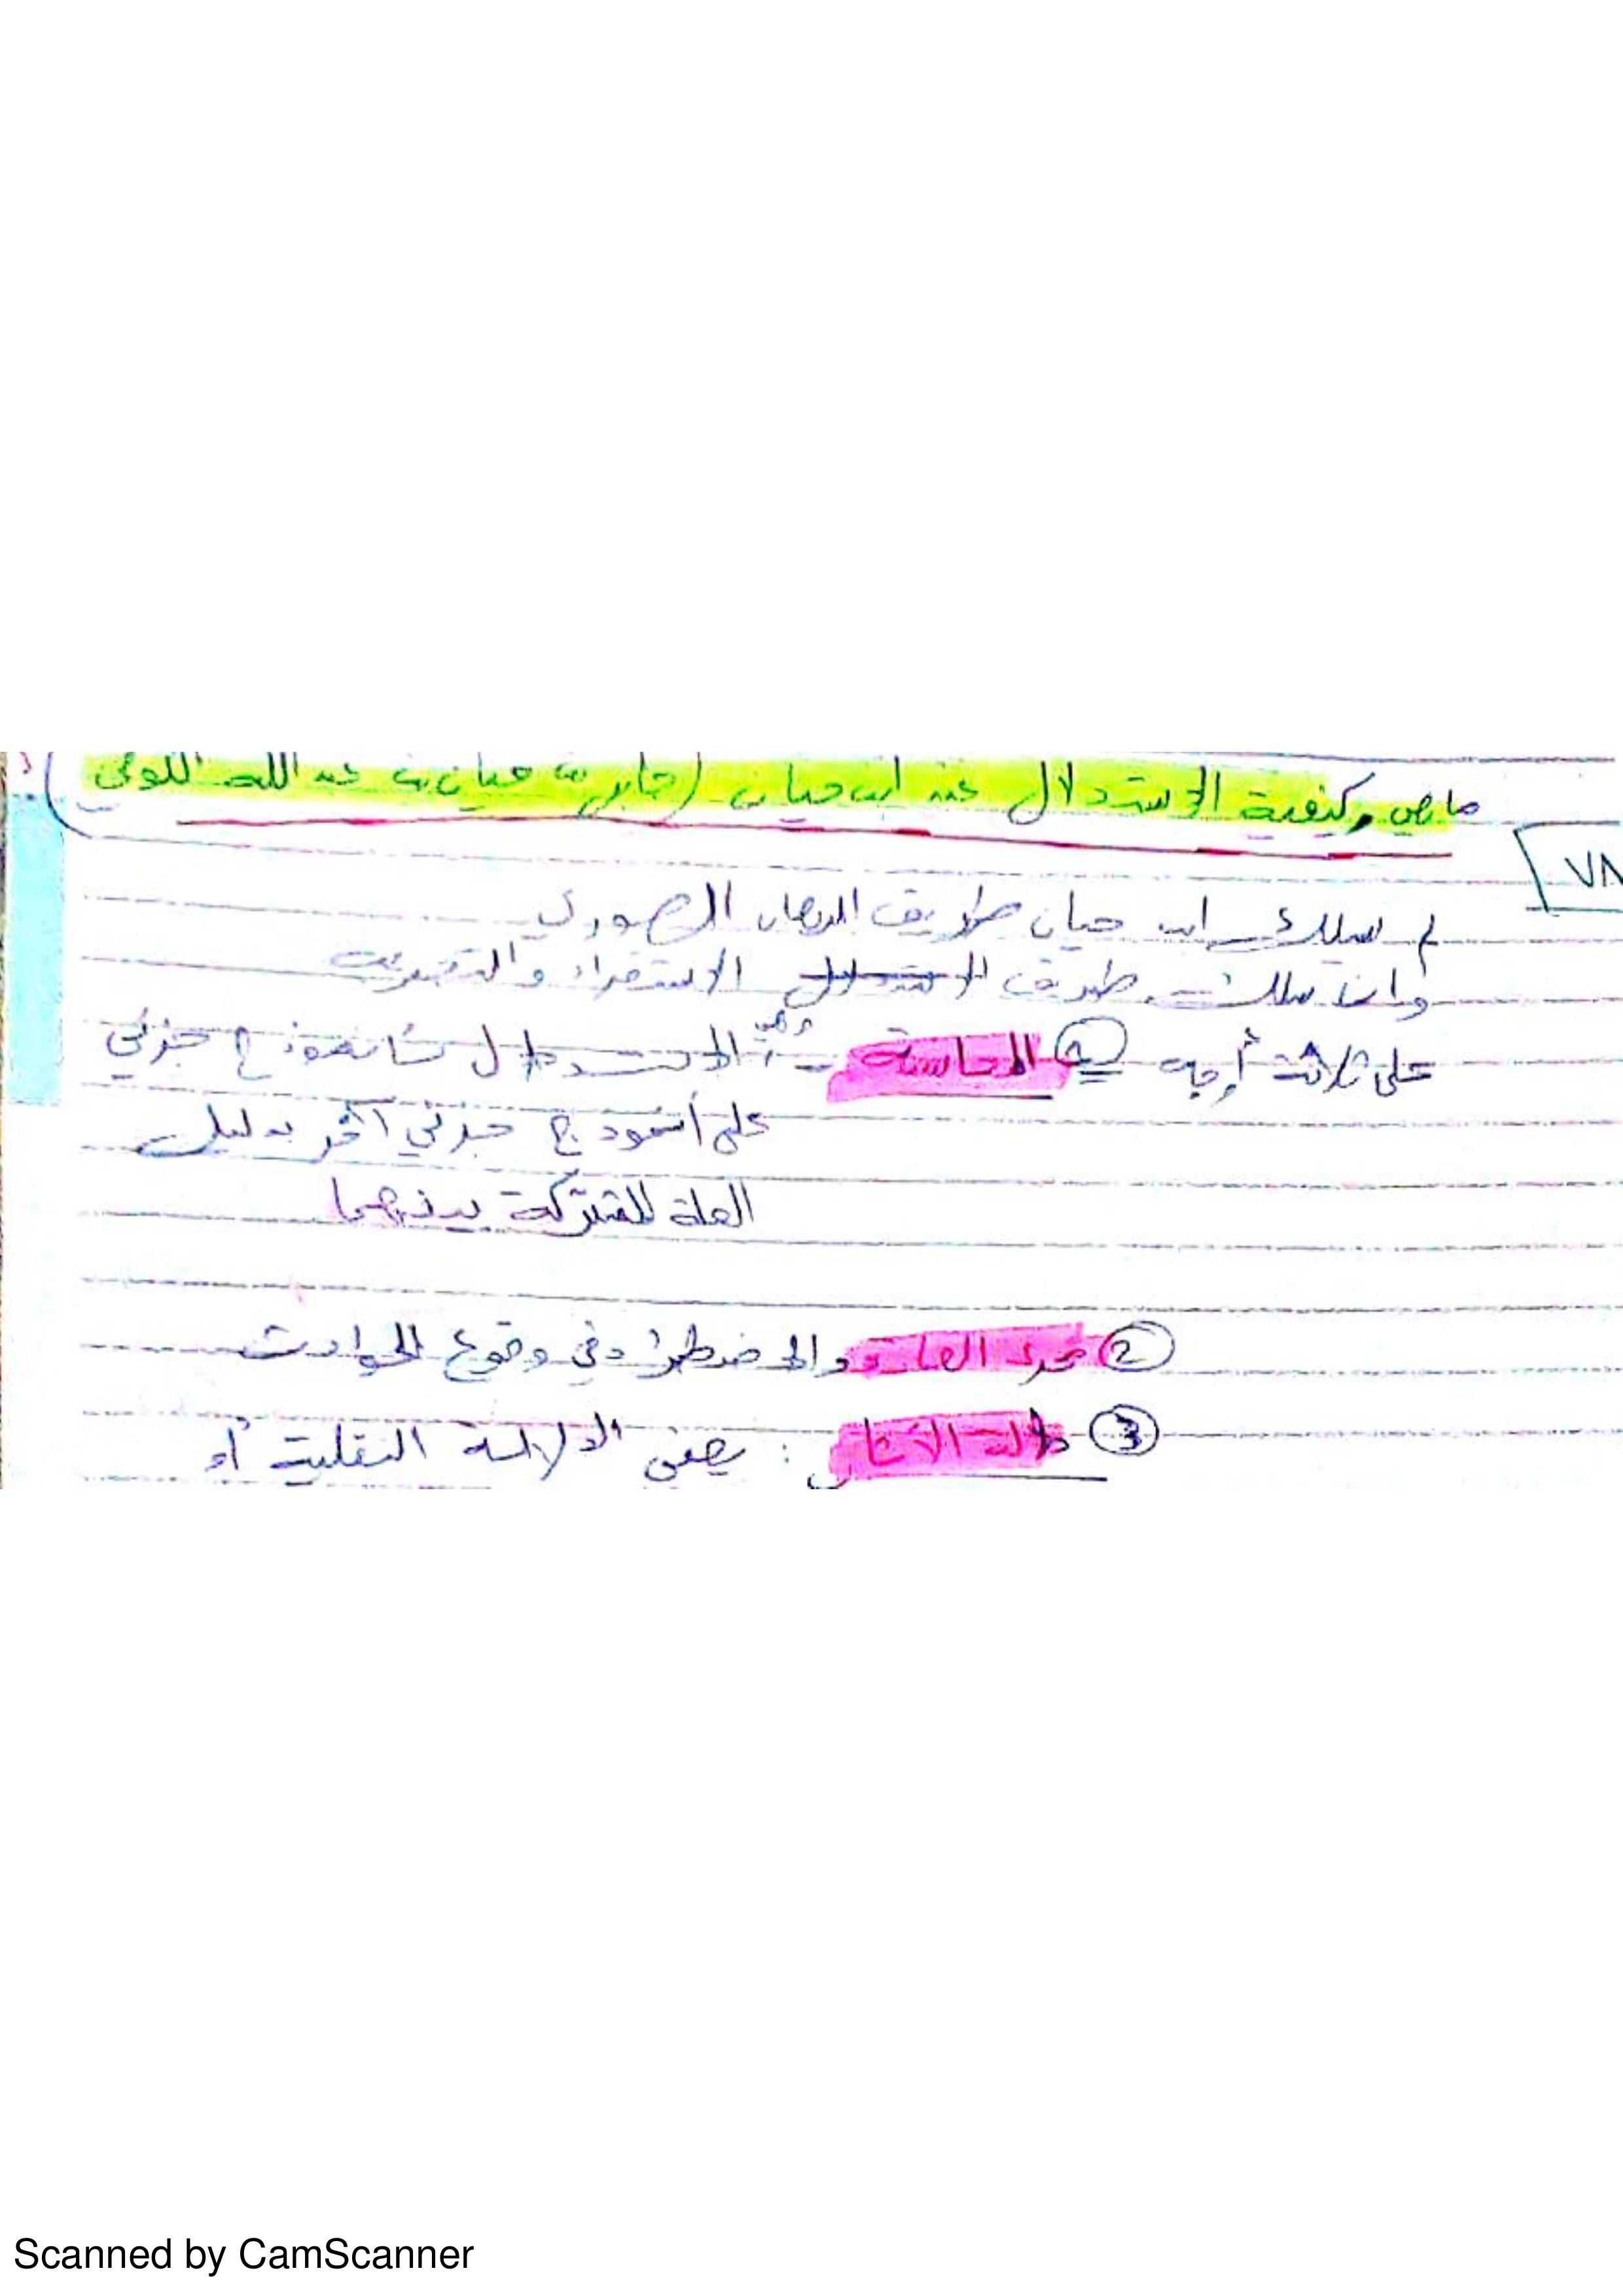 ماهي كيفية الاستدلال عند ابن حيان (جابر بن حيان بن عبد الله الكوفي)
٧٨
لم يسلك ابن حيان طريق البرهان الصوري
وانما سلك طريق الاستدلال الاستقراء والتجريب
على ثلاث أوجه ① المجانسة - وهي الاستدلال بأنموذج جزئي
على أنموذج جزئي آخر بدليل
العلة المشتركة بينهما
② مجرى العادة والاضطراد في وقوع الحوادث
③ دلالة الآثار : يعني الدلالة النقلية أو
Scanned by CamScanner